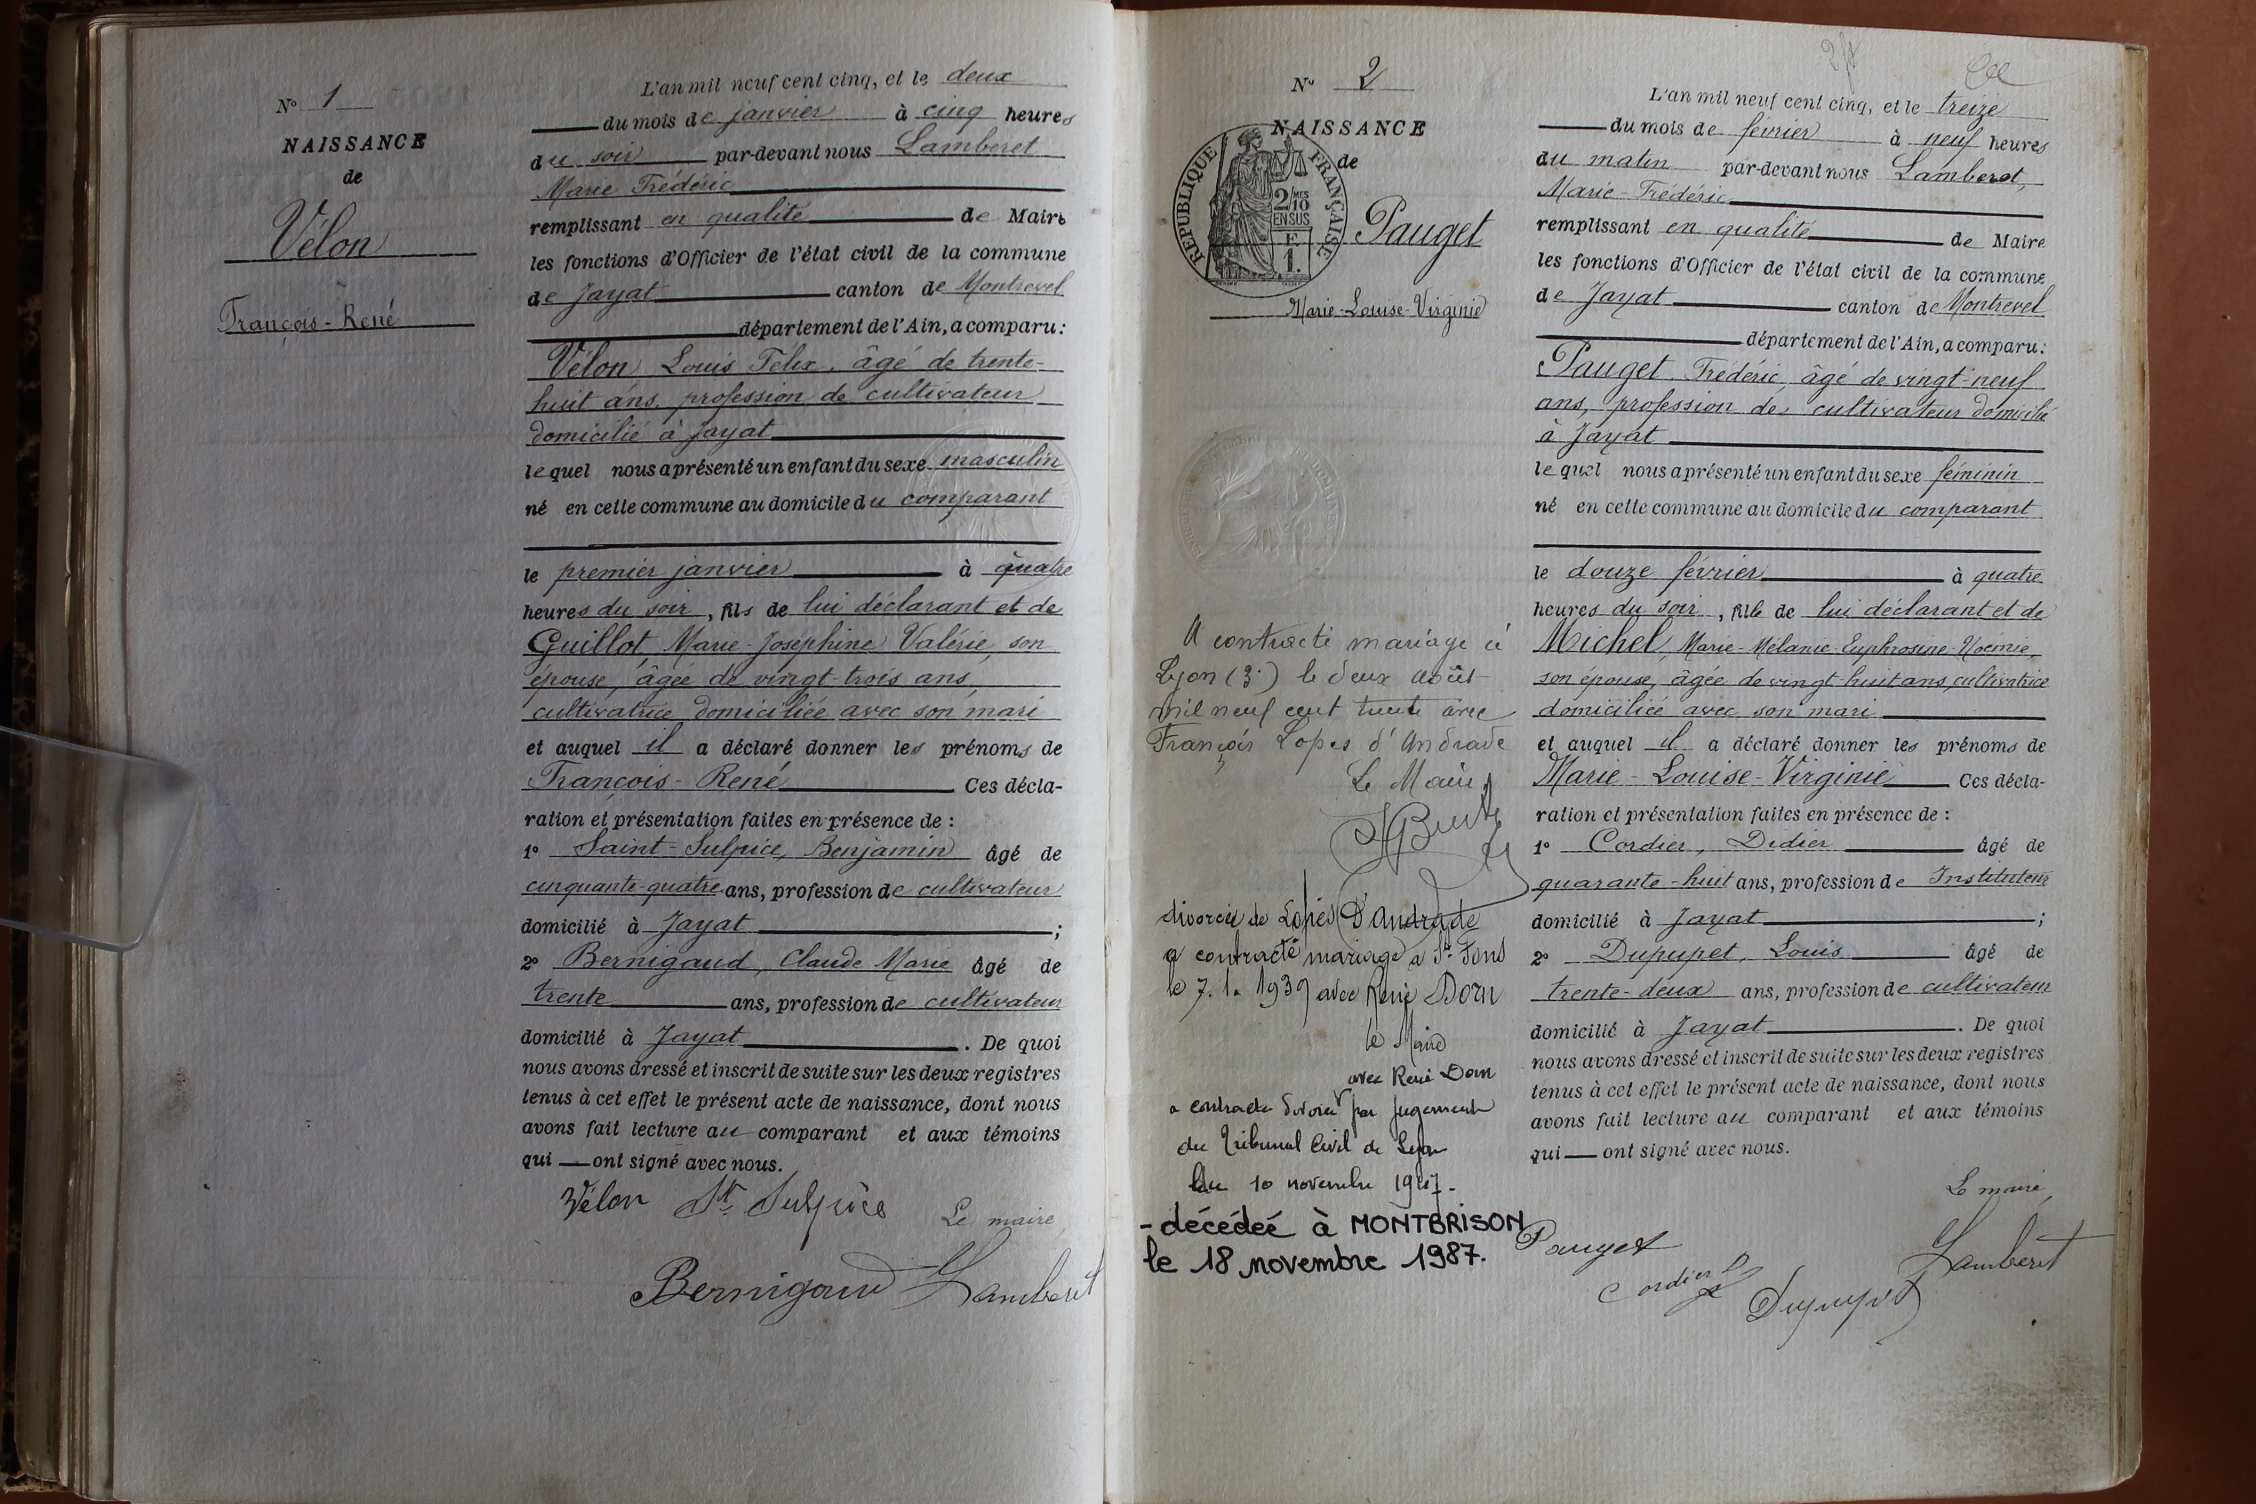 Nº 1
NAISSANCE
de
Vélon
François-René
L'an mil neuf cent cinq, et le deux
du mois de janvier à cinq heures
du soir par-devant nous Lamberet
Marie Frédéric
remplissant en qualité de Maire
les fonctions d'Officier de l'état civil de la commune
de Jayat canton de Montrevel
département de l'Ain, a comparu:
Vélon Louis Félix, âgé de trente-
huit ans, profession de cultivateur
domicilié à Jayat
lequel nous a présenté un enfant du sexe masculin
né en cette commune au domicile du comparant
le premier janvier à quatre
heures du soir, fils de lui déclarant et de
Guillot, Marie-Joséphine Valérie, son
épouse, âgée de vingt-trois ans,
cultivatrice domiciliée avec son mari
et auquel il a déclaré donner les prénoms de
François-René Ces décla-
ration et présentation faites en présence de :
1º Saint-Sulpice, Benjamin âgé de
cinquante-quatre ans, profession de cultivateur
domicilié à Jayat ;
2º Bernigaud, Claude Marie âgé de
trente ans, profession de cultivateur
domicilié à Jayat . De quoi
nous avons dressé et inscrit de suite sur les deux registres
tenus à cet effet le présent acte de naissance, dont nous
avons fait lecture au comparant et aux témoins
qui ont signé avec nous.
Vélon St Sulpice Le maire,
Bernigaud Lamberet
Nº 2
NAISSANCE
de
RÉPUBLIQUE FRANÇAISE
2/10
MES
EN SUS
F.
1.
Pauget
Marie-Louise-Virginie
A contracté mariage à
Lyon (3e) le deux août
mil neuf cent trente avec
François Lopes d'Andrade
Le Maire
divorcée de Lopès D'Andrade
a contracté mariage à St Fons
le 7.1.1939 avec René Dorn
le Maire
avec René Dorn
a contracté divorce par jugement
du Tribunal Civil de Lyon
du 10 novembre 1947.
- décédée à MONTBRISON
le 18 novembre 1987.
L'an mil neuf cent cinq, et le treize
du mois de février à neuf heures
du matin par-devant nous Lamberet,
Marie-Frédéric
remplissant en qualité de Maire
les fonctions d'Officier de l'état civil de la commune
de Jayat canton de Montrevel
département de l'Ain, a comparu:
Pauget Frédéric, âgé de vingt-neuf
ans, profession de cultivateur domicilié
à Jayat
lequel nous a présenté un enfant du sexe féminin
né en cette commune au domicile du comparant
le douze février à quatre
heures du soir, fille de lui déclarant et de
Michel, Marie-Mélanie-Euphrosine-Noémie,
son épouse, âgée de vingt huit ans, cultivatrice
domiciliée avec son mari
et auquel il a déclaré donner les prénoms de
Marie-Louise-Virginie Ces décla-
ration et présentation faites en présence de :
1º Cordier, Didier âgé de
quarante-huit ans, profession de Instituteur
domicilié à Jayat ;
2º Dupupet, Louis âgé de
trente-deux ans, profession de cultivateur
domicilié à Jayat . De quoi
nous avons dressé et inscrit de suite sur les deux registres
tenus à cet effet le présent acte de naissance, dont nous
avons fait lecture au comparant et aux témoins
qui ont signé avec nous.
Le maire,
Pauget Lamberet
Cordier D Dupupet